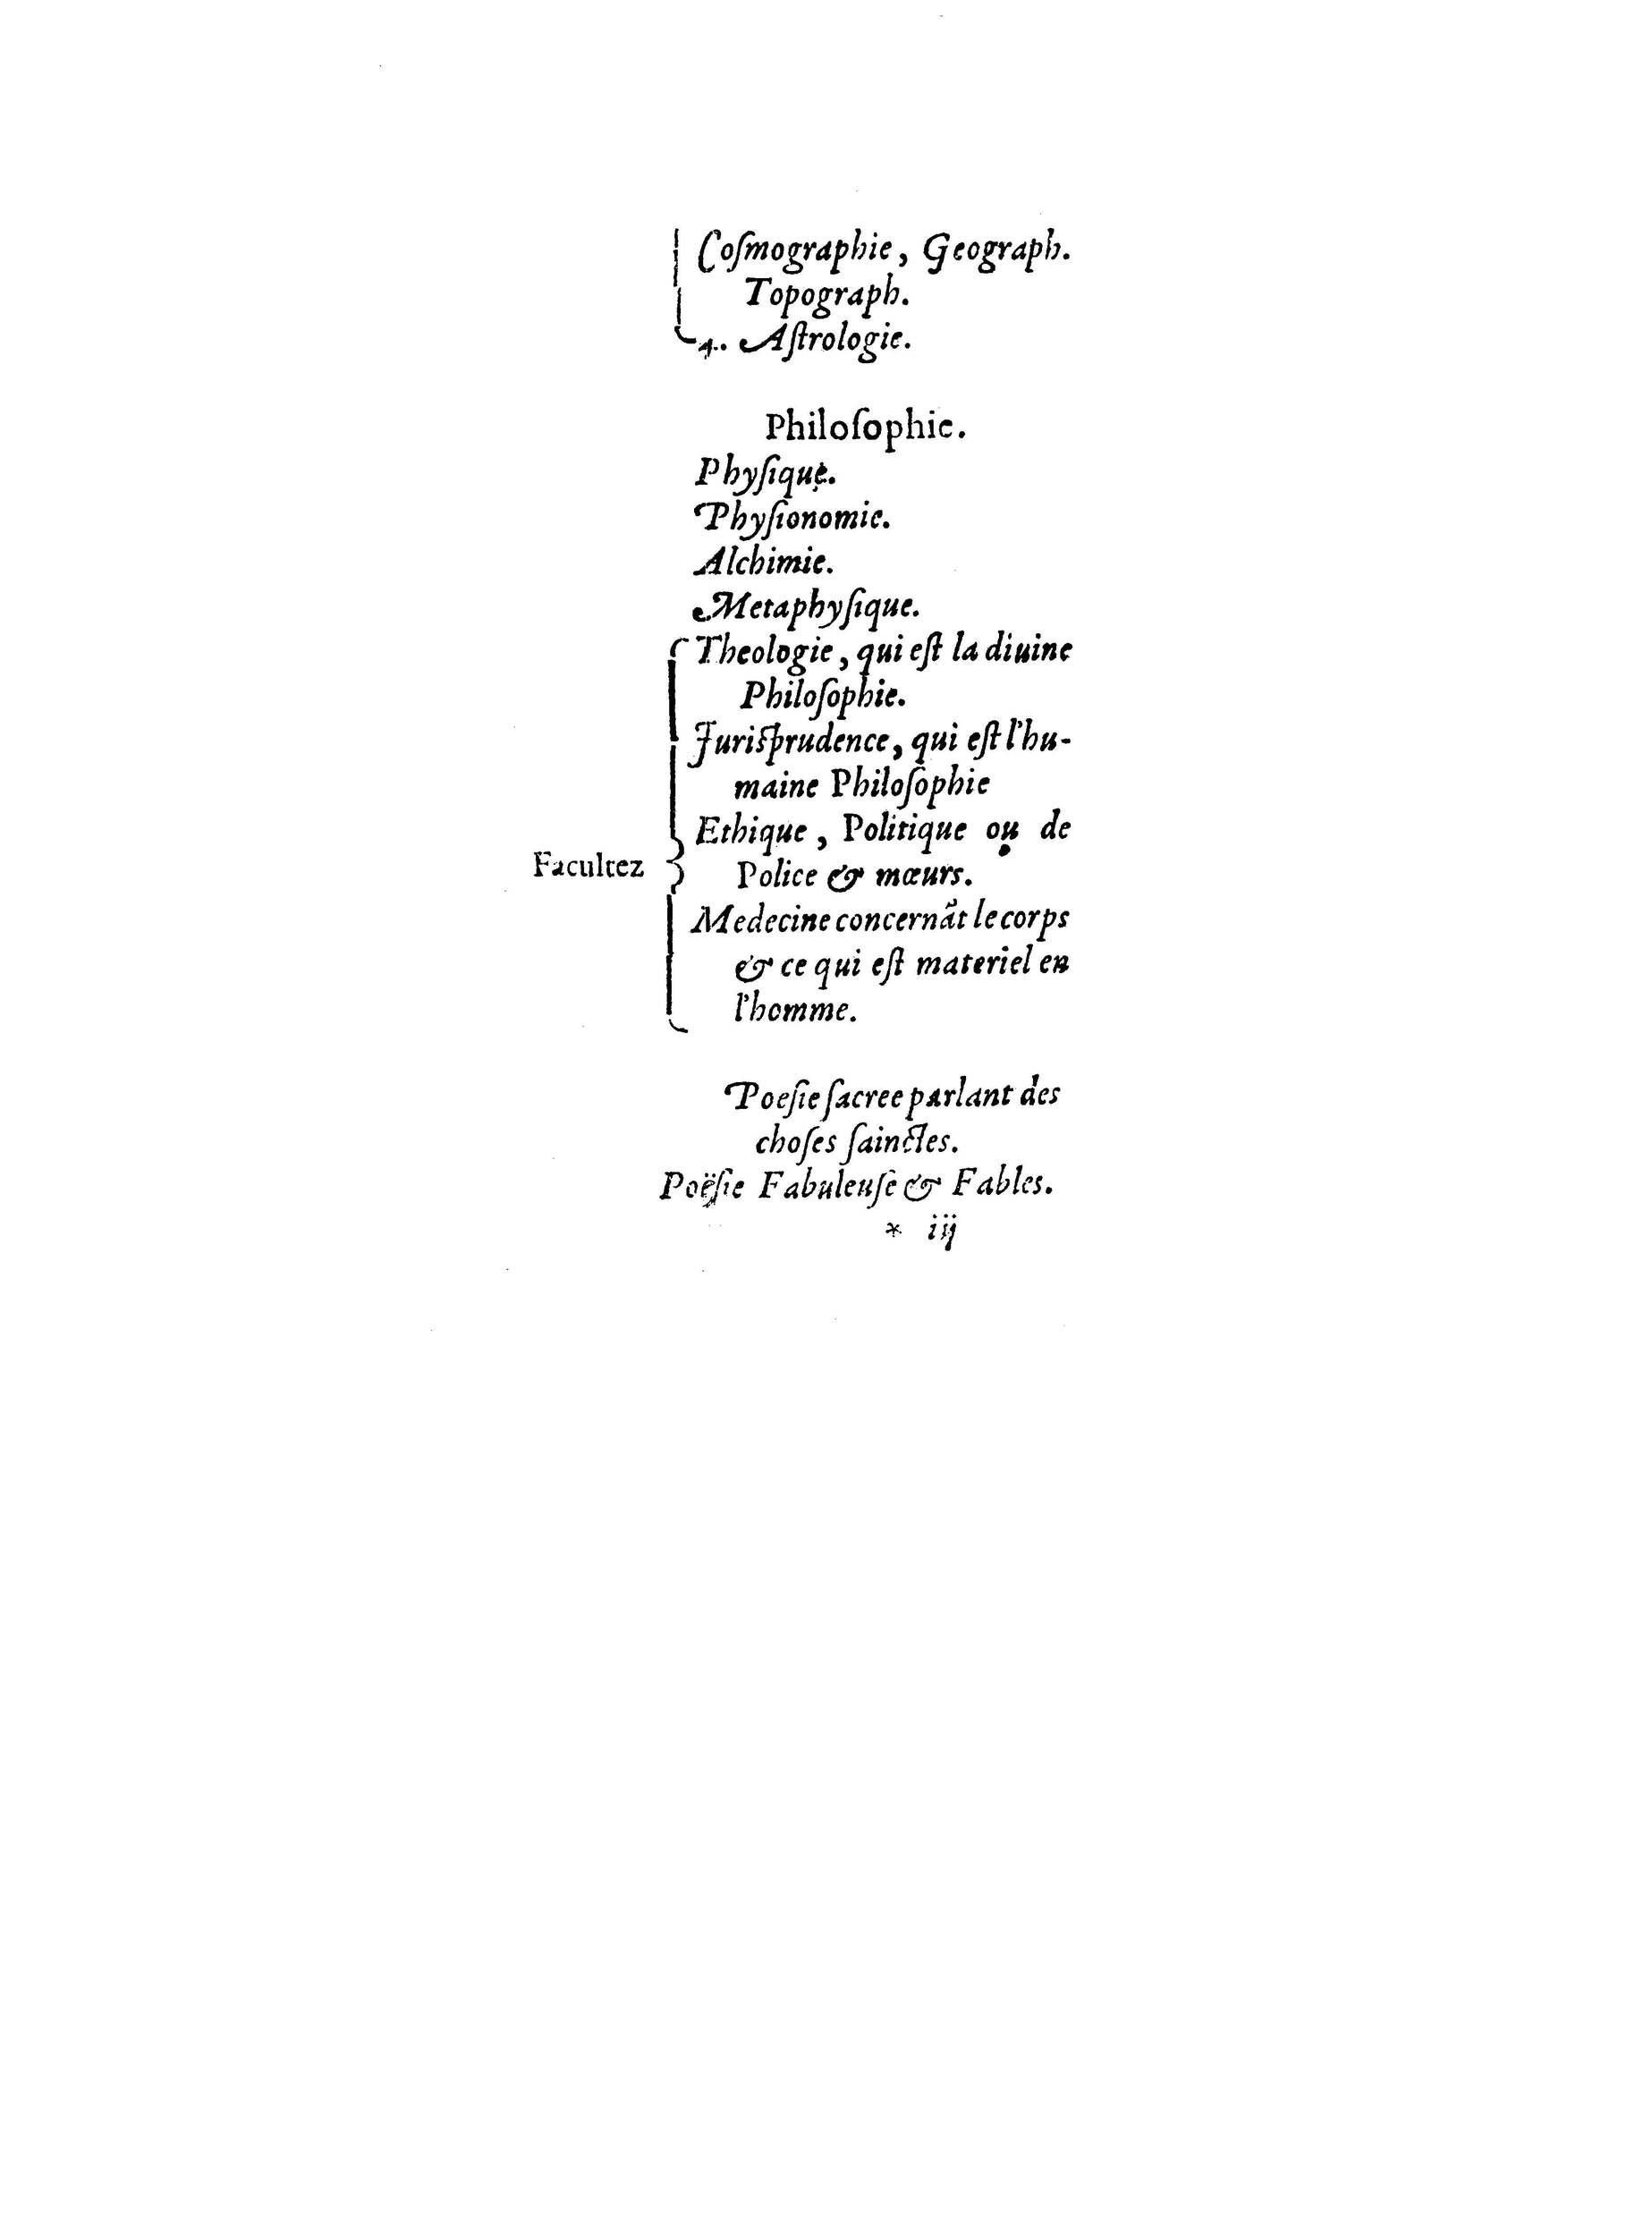 Coſmographie, Geograph.
Topograph.
4. Aſtrologie.
Philoſophie.
Phyſique.
Phyſionomie.
Alchimie.
Metaphyſique.
Theologie, qui eſt la diuine
Philoſophie.
Juriſprudence, qui eſt l'hu-
maine Philoſophie
Ethique, Politique ou de
Facultez
Police & mœurs.
Medecine concernãt le corps
& ce qui eſt materiel en
l'homme.
Poeſie ſacree parlant des
choſes ſainctes.
Poëſie Fabuleuſe & Fables.
* iij